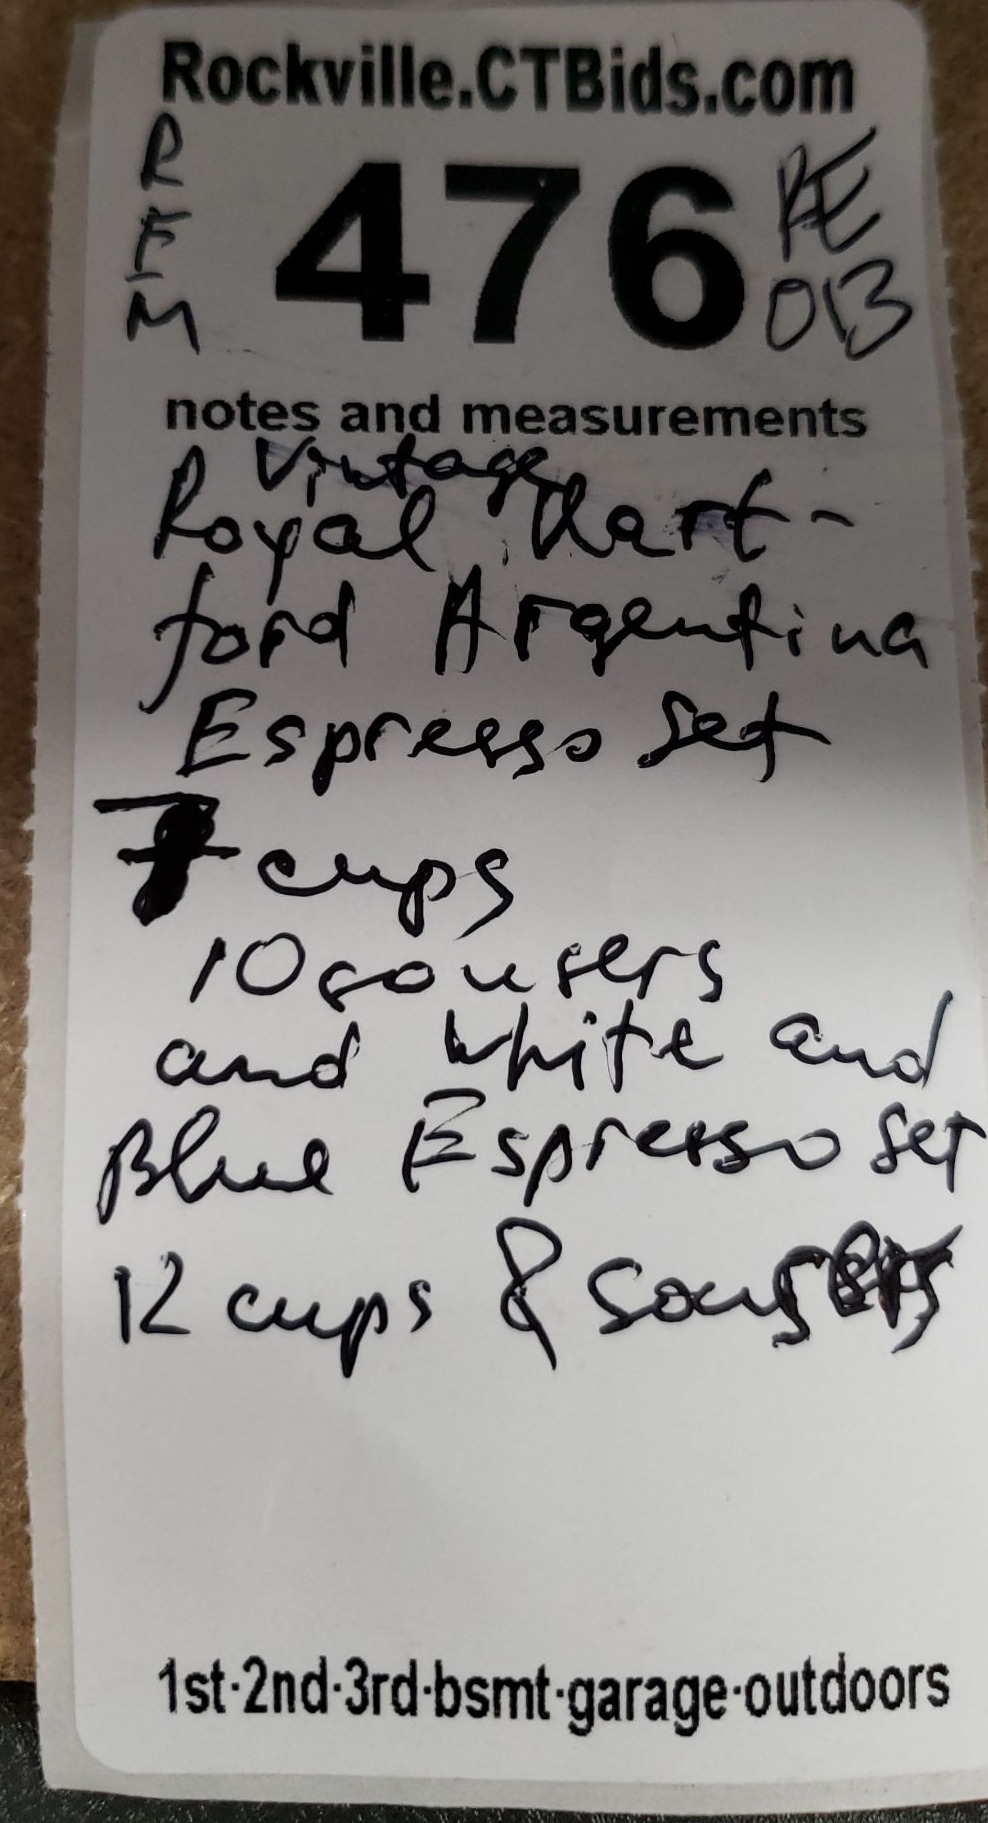 Rockville.CTBids.com
RFM 476 PE 013
notes and measurements
Vintage
Royal Hart-
ford Argentina
Espresso set
7 cups
10 sousers
and White and
Blue Espresso set
12 cups & sousers
1st·2nd·3rd·bsmt·garage·outdoors